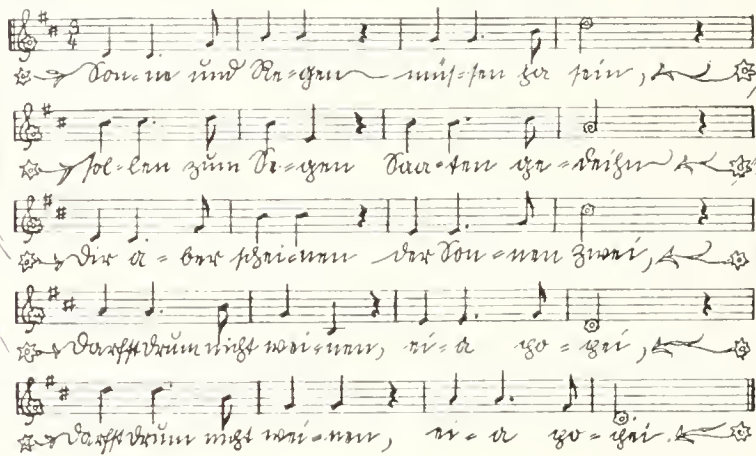 Son=ne und Re=gen müs=sen ja sein,
sol=len zum Se=gen Saa=ten ge=deihn
Dir a=ber schei=nen der Son=nen zwei,
Darfst drum nicht wei=nen, ei=a po=pei,
Darfst drum nicht wei=nen, ei=a po=pei.